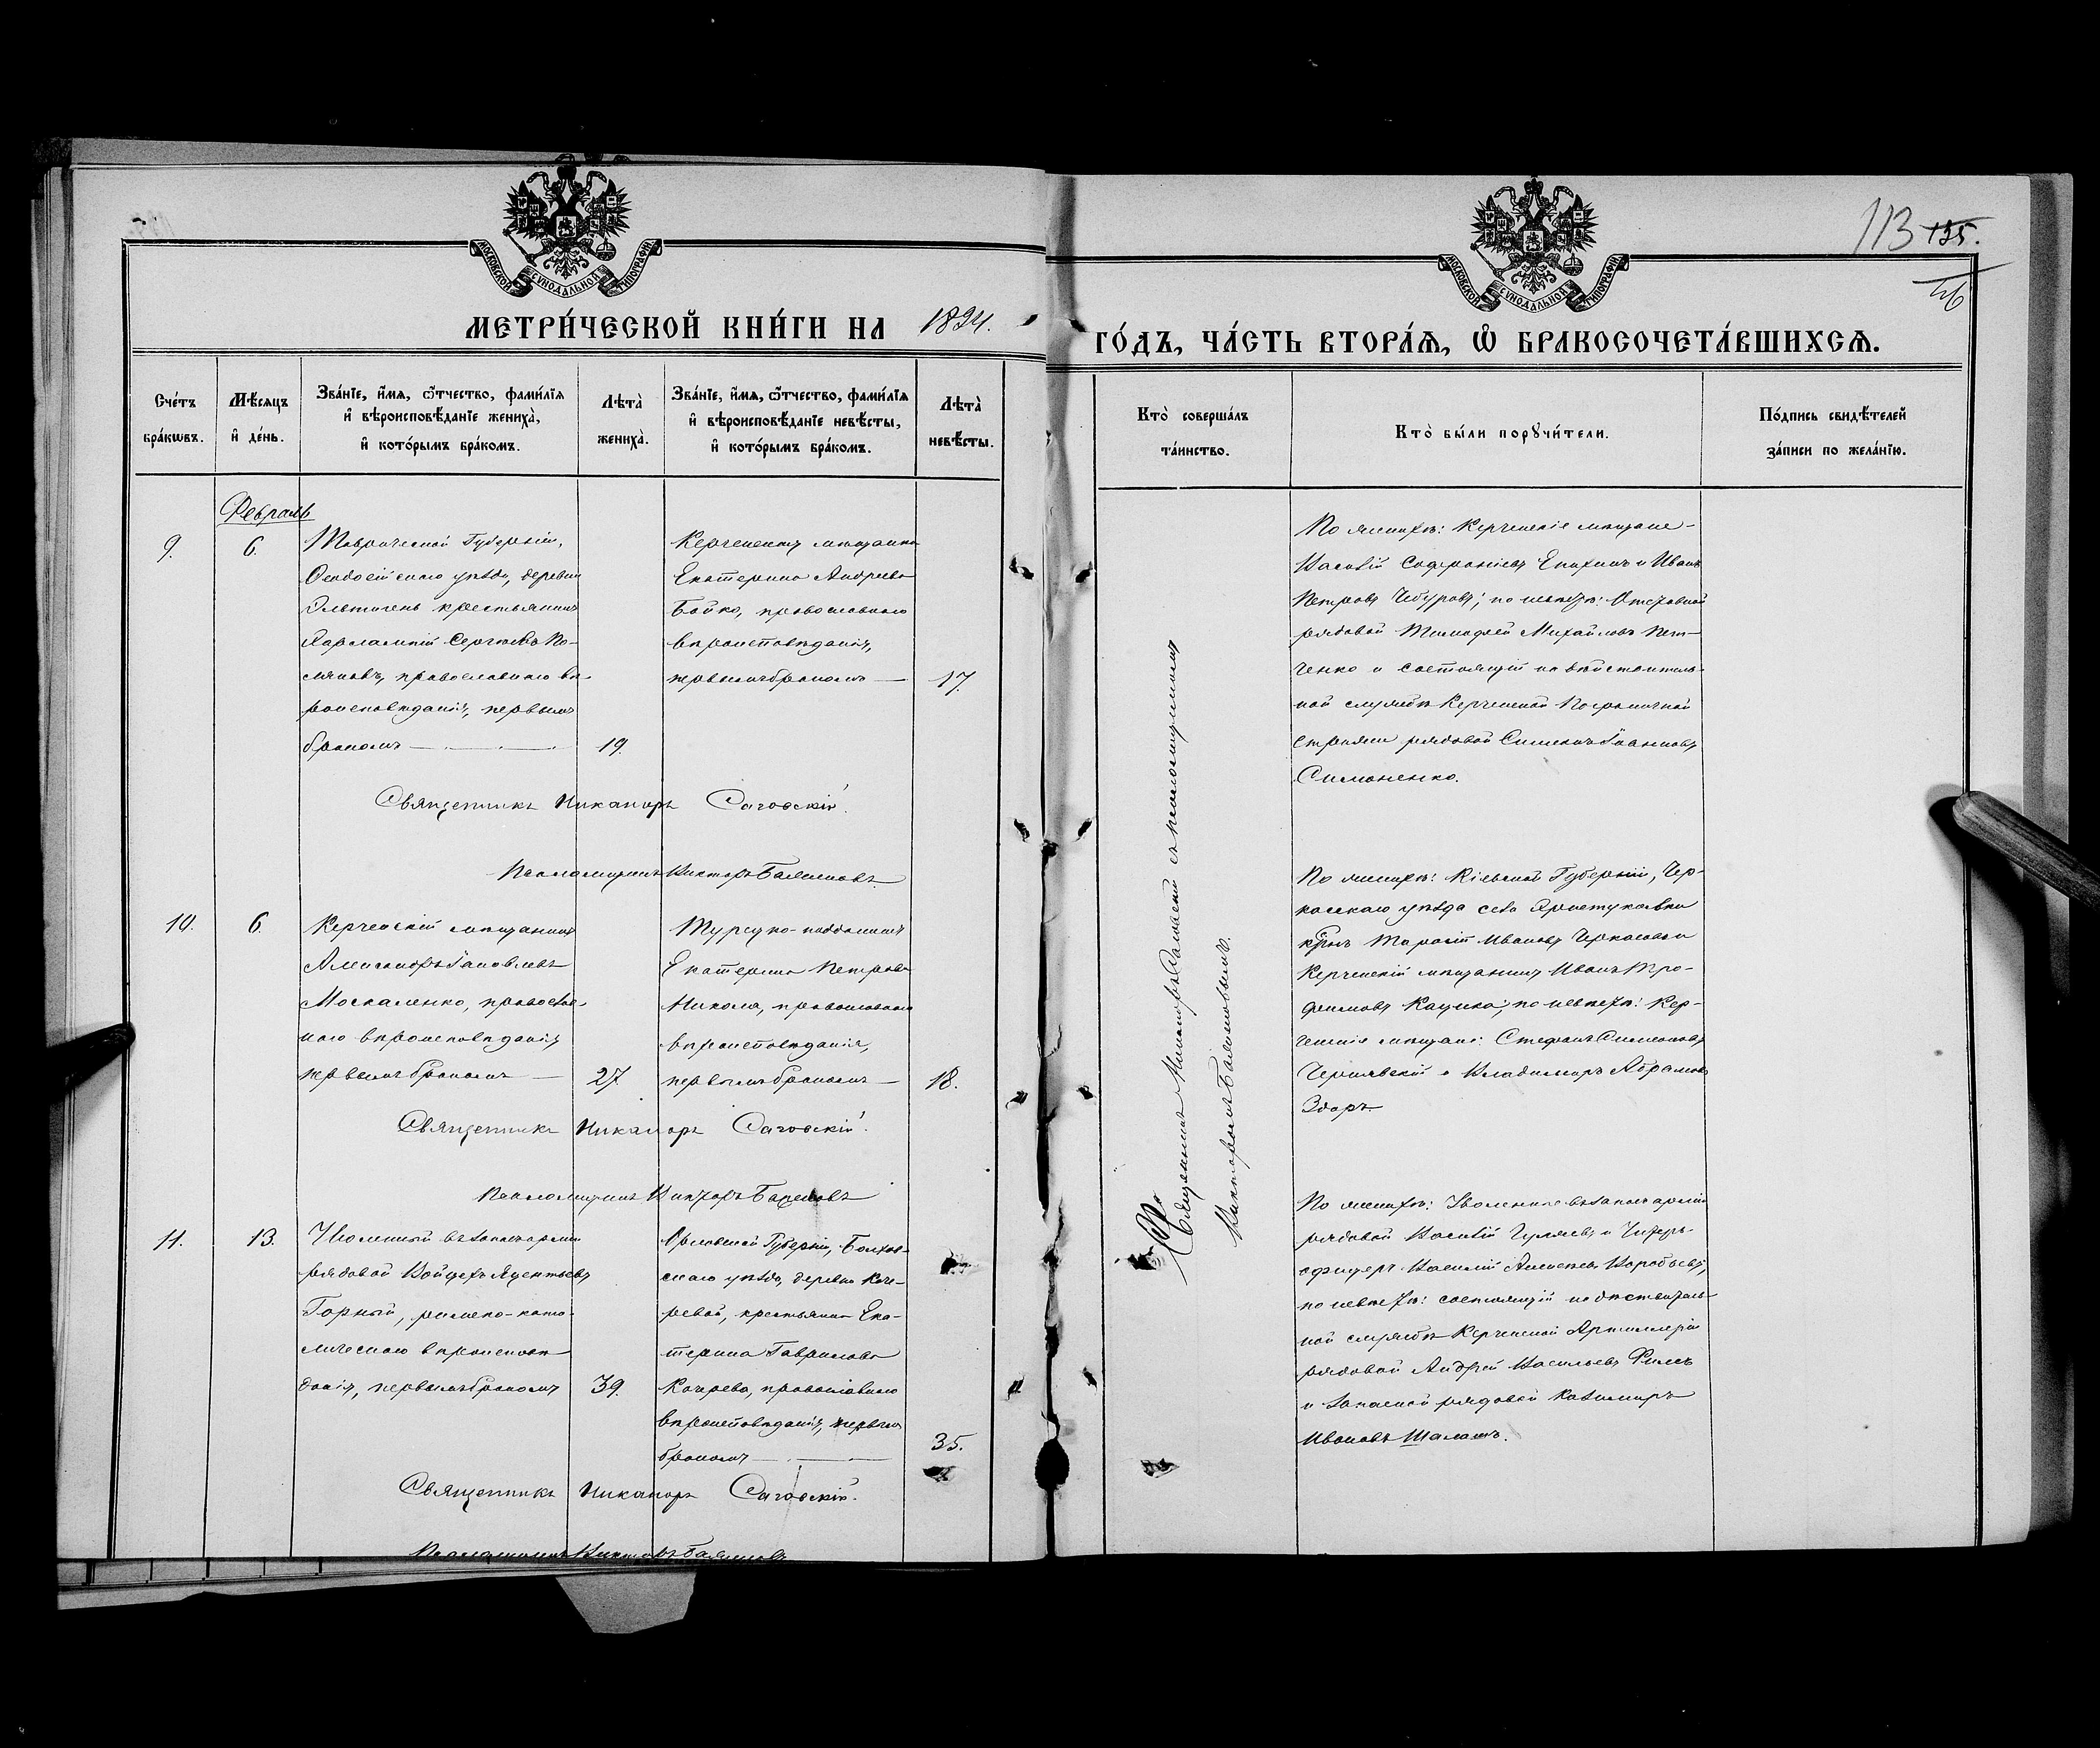 113 135.
МОСКОВСКОЙ СѴНОДАЛЬНОЙ ТИПОГРАФІИ
МЕТРИ́ЧЕСКОЙ КНИ́ГИ НА 1894.
Сче́тъ бра́кѡвъ.
Мѣ́сяцъ и҆ де́нь.
Зва́нїе, и҆́мѧ, ѻ҆́тчество, фами́лїѧ
и҆ вѣроисповѣ́данїе жениха̀,
и҆ кото́рымъ бра́комъ.
Лѣта̀ жениха̀.
Зва́нїе, и҆́мѧ, ѻ҆́тчество, фами́лїѧ
и҆ вѣроисповѣ́данїе невѣ́сты,
и҆ кото́рымъ бра́комъ.
Лѣта̀ невѣ́сты.
Февраль
9.
6.
Таврической Губерніи,
Ѳеодосійскаго уѣзда, деревни
Эльтигень крестьянинъ
Харлампій Сергѣевъ По-
православнаго вѣ-
роисповѣданія, первымъ
бракомъ
19.
Керченская мѣщанка
Екатерина Андреева
Бойко, православнаго
вѣроисповѣданія,
первымъ бракомъ
17.
Священникъ Никаноръ Саговскій.
Псаломщикъ Викторъ Баяновъ
10.
6.
Керченскій мѣщанинъ
Александръ Яковлевъ
Москаленко, православ-
наго вѣроисповѣданія
первымъ бракомъ
27
Турецко-подданная
Екатерина Петрова
Никола, православнаго
вѣроисповѣданія,
первымъ бракомъ
18.
Священникъ Никаноръ Саговскій.
Псаломщикъ Викторъ
11.
13.
Уволенный въ запасъ арміи
рядовой Войцехъ
Горный, римско-като-
лическаго вѣроисповѣ-
данія, первымъ бракомъ
39.
Орловской Губерніи, Болхов-
скаго уѣзда, деревни Коче-
ревой, крестьянка Ека-
терина Гаврилова
Кочрева, православнаго
вѣроисповѣданія, первымъ
бракомъ
35.
Священникъ Никаноръ Саговскій.
Псаломщикъ Викторъ
МОСКОВСКОЙ СѴНОДАЛЬНОЙ ТИПОГРАФІИ
ГО́ДЪ, ЧА́СТЬ ВТОРА́Ѧ, Ѡ҆ БРАКОСОЧЕТА́ВШИХСѦ.
Кто̀ соверша́лъ та́инство.
Кто̀ бы́ли порꙋчи́тели.
По́дпись свидѣ́телей за́писи по жела́нїю.
Священникъ Никаноръ Саговскій съ псаломщикомъ
Викторомъ Баяновымъ.
По женихѣ: Керченскіе мѣщане
Василій Софроніевъ и Иванъ
Петровъ по невѣстѣ: Отставной
рядовой Тимофей Михайловъ Пет-
ченко и состоящій на дѣйствитель-
ной службѣ Керченской Пограничной
стражи рядовой
Симоненко.
По женихѣ: Кіевской Губерніи, Чер-
касскаго уѣзда села
Тарасій Ивановъ Черкасовъ и
Керченскій мѣщанинъ Иванъ Тро-
фимовъ по невѣстѣ: Кер-
ченскіе мѣщане: Стефанъ Симеоновъ
Чернявскій и Владимиръ Абрамовъ
По женихѣ: Уволенные въ запасъ арміи
рядовой Василій и Унтеръ-
офицеръ Василій Алексѣевъ Воробьевъ,
по невѣстѣ: состоящій на дѣйствитель-
ной службѣ Керченской Артиллеріи
рядовой Андрей Васильевъ
и запасной рядовой Казимиръ
Ивановъ